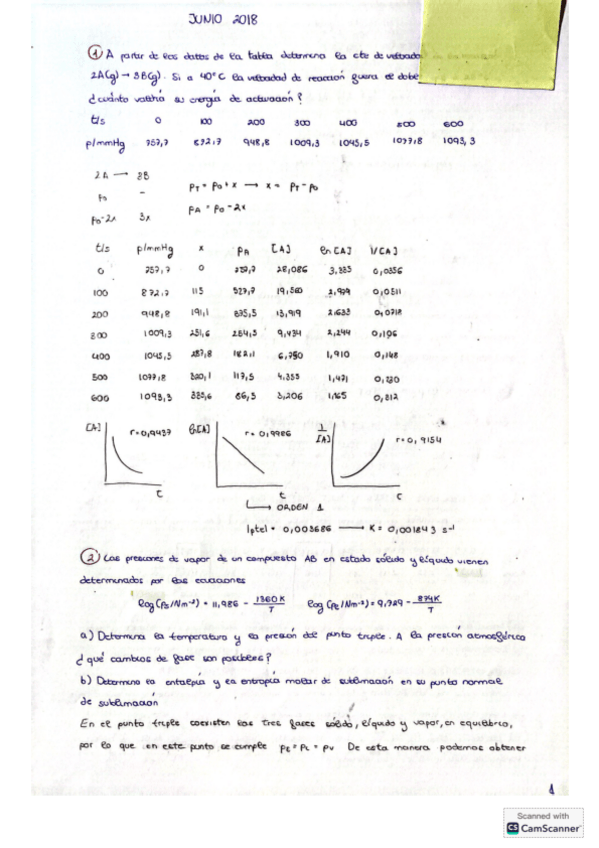 JUNIO 2018
① A partir de los datos de la tabla determina la cte de velocidad
2A(g) → 3B(g). Si a 40ºC la velocidad de reacción fuera el doble
¿cuánto valdría su energía de activación?
t/s 0 100 200 300 400 500 600
p/mmHg 757,7 872,7 948,8 1009,3 1045,5 1077,8 1093,3
2A → 3B
p₀ -
p₀-2x 3x
pT = p₀ + x → x = pT - p₀
pA = p₀ - 2x
t/s p/mmHg x pA [A] ln[A] 1/[A]
0 757,7 0 757,7 28,086 3,335 0,0356
100 872,7 115 527,7 19,560 2,979 0,0511
200 948,8 191,1 375,5 13,919 2,633 0,0718
300 1009,3 251,6 254,5 9,434 2,244 0,106
400 1045,5 287,8 182,1 6,750 1,910 0,148
500 1077,8 320,1 117,5 4,355 1,471 0,230
600 1093,3 335,6 86,5 3,206 1,165 0,312
[A] r=0,9437 ln[A] r=0,9986 1/[A] r=0,9154
t t t
→ ORDEN 1
|pte| = 0,003686 → K = 0,001843 s⁻¹
② Las presiones de vapor de un compuesto AB en estado sólido y líquido vienen
determinados por las ecuaciones
log(ps/Nm⁻²) = 11,986 - 1360K/T log(pl/Nm⁻²) = 9,729 - 874K/T
a) Determina la temperatura y la presión del punto triple. A la presión atmosférica
¿qué cambios de fase son posibles?
b) Determina la entalpía y la entropía molar de sublimación en su punto normal
de sublimación
En el punto triple coexisten las tres fases sólido, líquido y vapor, en equilibrio,
por lo que en este punto se cumple ps = pL = pv De esta manera podemos obtener
1
Scanned with
CS CamScanner